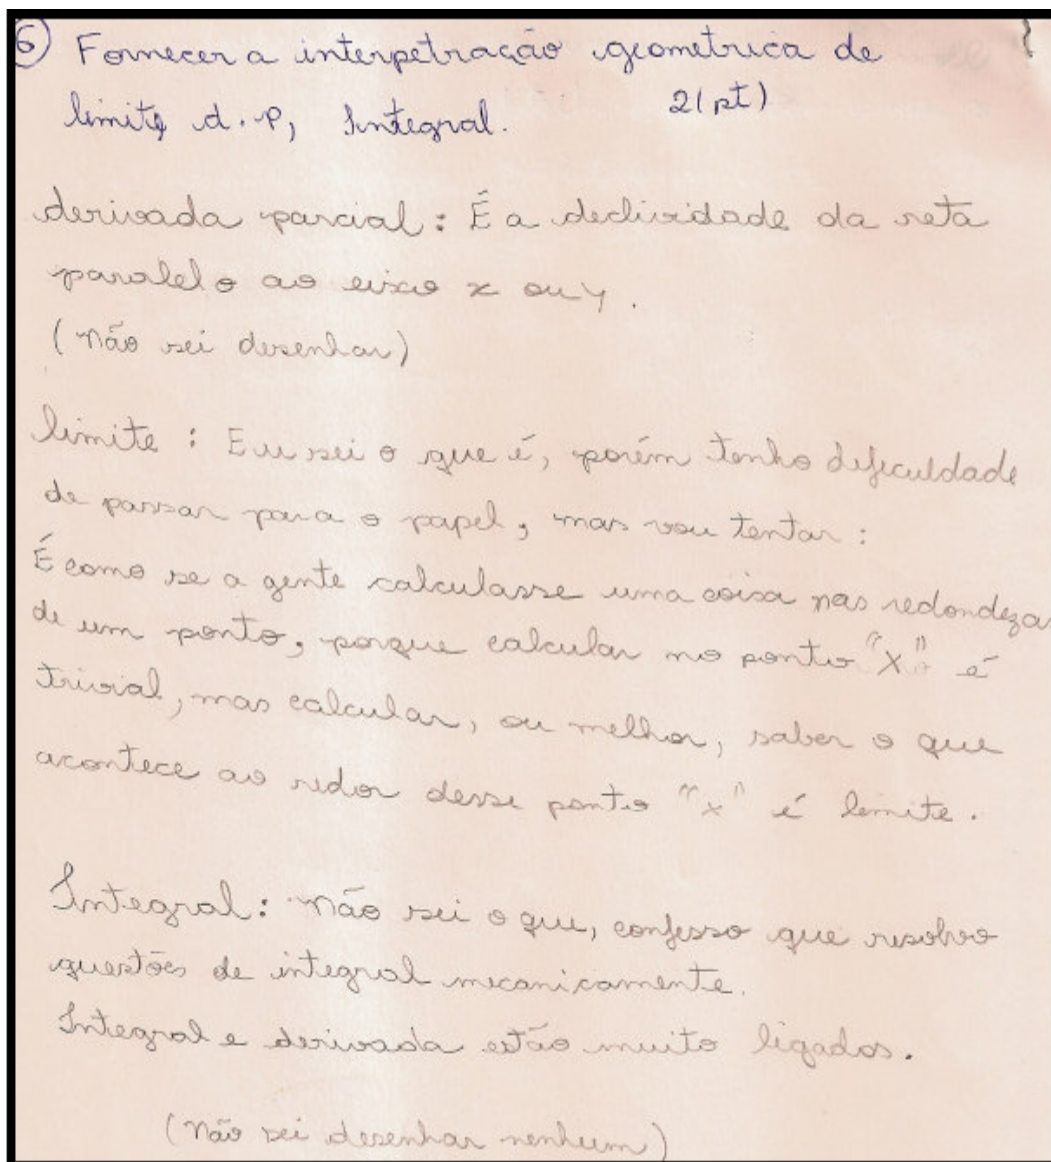 6) Fornecer a interpetração geometrica de
limite, d.P, Integral. 2(pt)
derivada parcial: É a declividade da reta
paralelo ao eixo x ou y.
(não sei desenhar)
limite: Eu sei o que é, porém tenho dificuldade
de passar para o papel, mas vou tentar:
É como se a gente calculasse uma coisa nas redondezas
de um ponto, porque calcular no ponto "x" é
trivial, mas calcular, ou melhor, saber o que
acontece ao redor desse ponto "x" é limite.
Integral: não sei o que, confesso que resolvo
questões de integral mecanicamente.
Integral e derivada estão muito ligados.
(não sei desenhar nenhum)